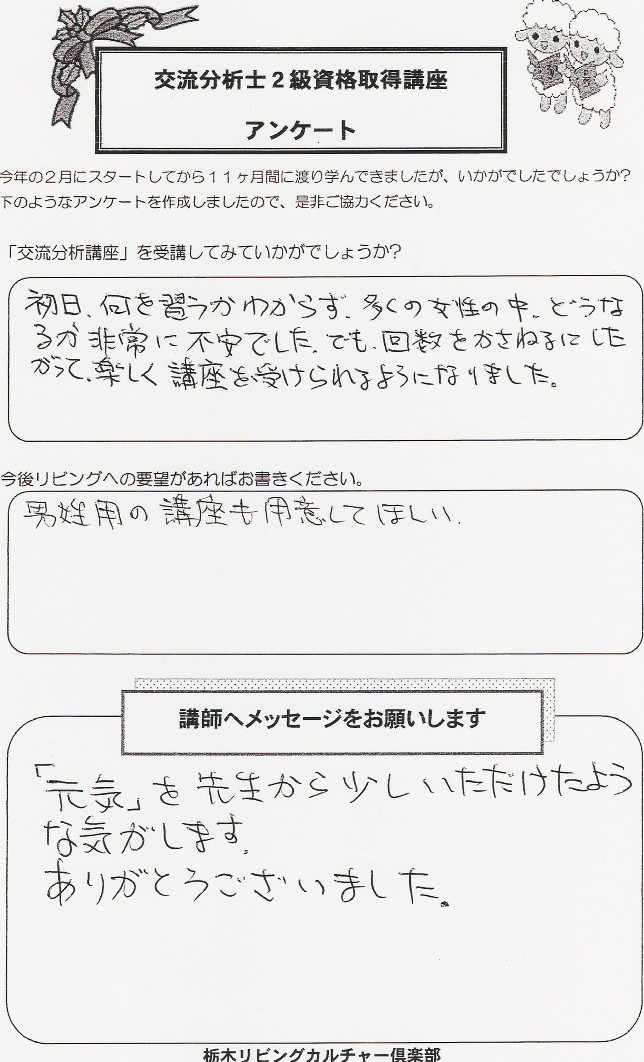 交流分析士２級資格取得講座
アンケート
今年の２月にスタートしてから１１ヶ月間に渡り学んできましたが、いかがでしたでしょうか？
下のようなアンケートを作成しましたので、是非ご協力ください。
「交流分析講座」を受講してみていかがでしょうか？
初日、何を習うかわからず、多くの女性の中、どうな
るか非常に不安でした。でも、回数をかさねるにした
がって、楽しく講座を受けられるようになりました。
今後リビングへの要望があればお書きください。
男姓用の講座も用意してほしい.
講師へメッセージをお願いします
「元気」を先生から少しいただけたよう
な気がします.
ありがとうございました。
栃木リビングカルチャー倶楽部